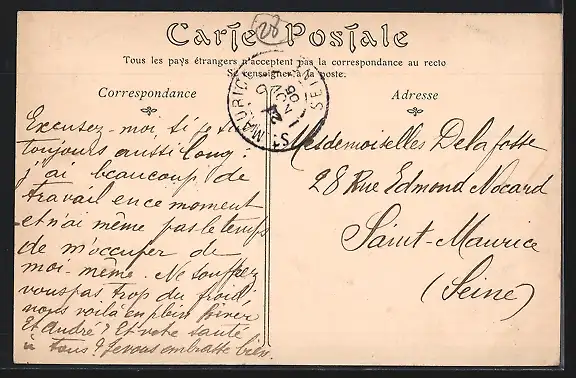 28
Carte Postale
Tous les pays étrangers n'acceptent pas la correspondance au recto
Se renseigner à la poste.
Correspondance
Excusez-moi, si je suis
toujours aussi long:
j'ai beaucoup de
travail en ce moment
et n'ai même pas le temps
de m'occuper de
moi-même. Ne souffrez
vous pas trop du froid,
nous voilà en plein hiver
Et André? Et votre santé
à tous? Je vous embrasse bien
ST MAURICE
SEINE
Adresse
Mesdemoiselles Delafosse
28 Rue Edmond Nocard
Saint-Maurice
(Seine)